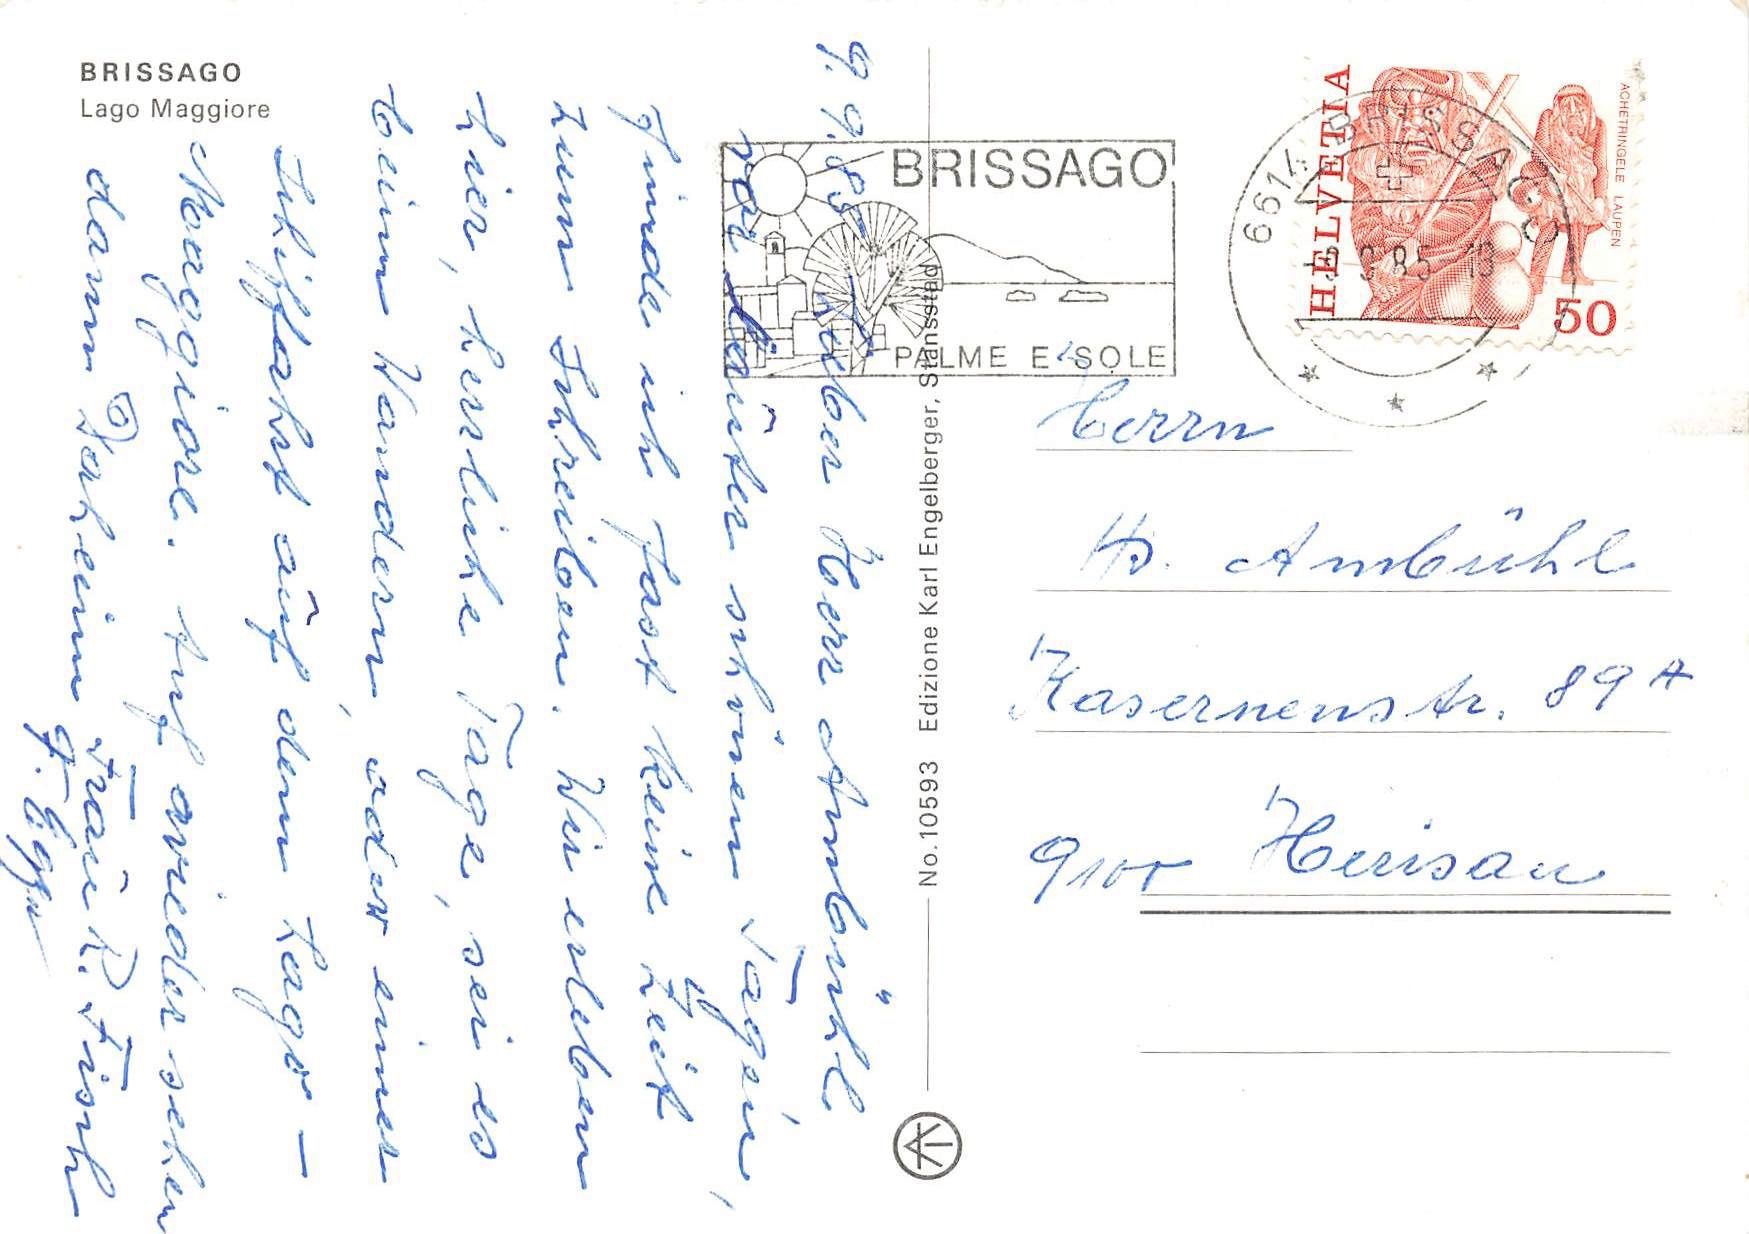 BRISSAGO
Lago Maggiore
9. 9. 85. Lieber Herr Ambühl
vor lauter schönen Tagen,
finde ich fast keine Zeit
zum Schreiben. Wir erleben
hier, herrliche Tage, sei es
beim Wandern, oder einer
Schiffahrt auf dem Lago –
Maggiore. Auf wieder sehen
dann Daheim Frau R. Fisch
BRISSAGO
PALME E SOLE
6614 BRISSAGO
9.85-18
HELVETIA
ACHETRINGELE LAUPEN
50
No. 10593 Edizione Karl Engelberger, Stansstad
Herrn
Hs. Ambühl
Kasernenstr. 89 A
9100 Herisau